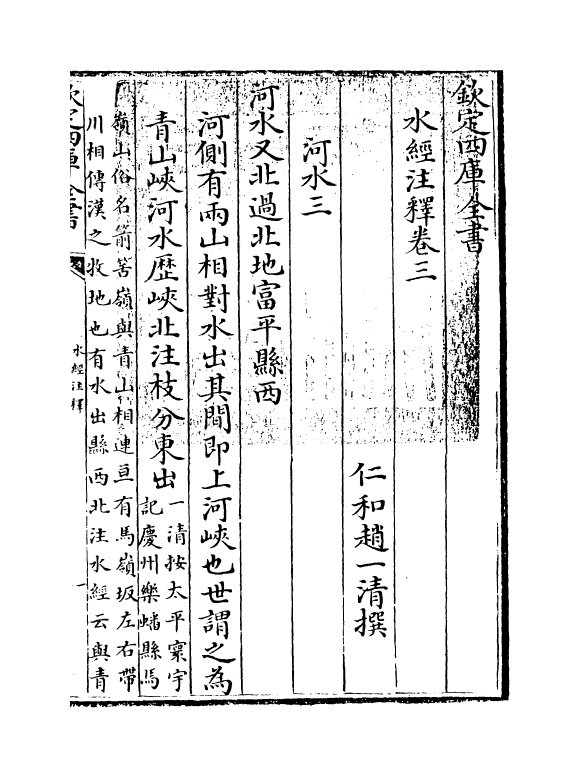 欽定四庫全書
水經注釋卷三
仁和趙一清撰
河水三
河水又北過北地富平縣西
河側有兩山相對水出其間即上河峽也世謂之為
青山峽河水歷峽北注枝分東出
一清按太平寰宇
記慶州樂蟠縣馬
嶺山俗名箭筈嶺與青山相連亘有馬嶺坂左右帶
川相傳漢之牧地也有水出縣西北注水經云與青
欽定四庫全書
水經注釋
一